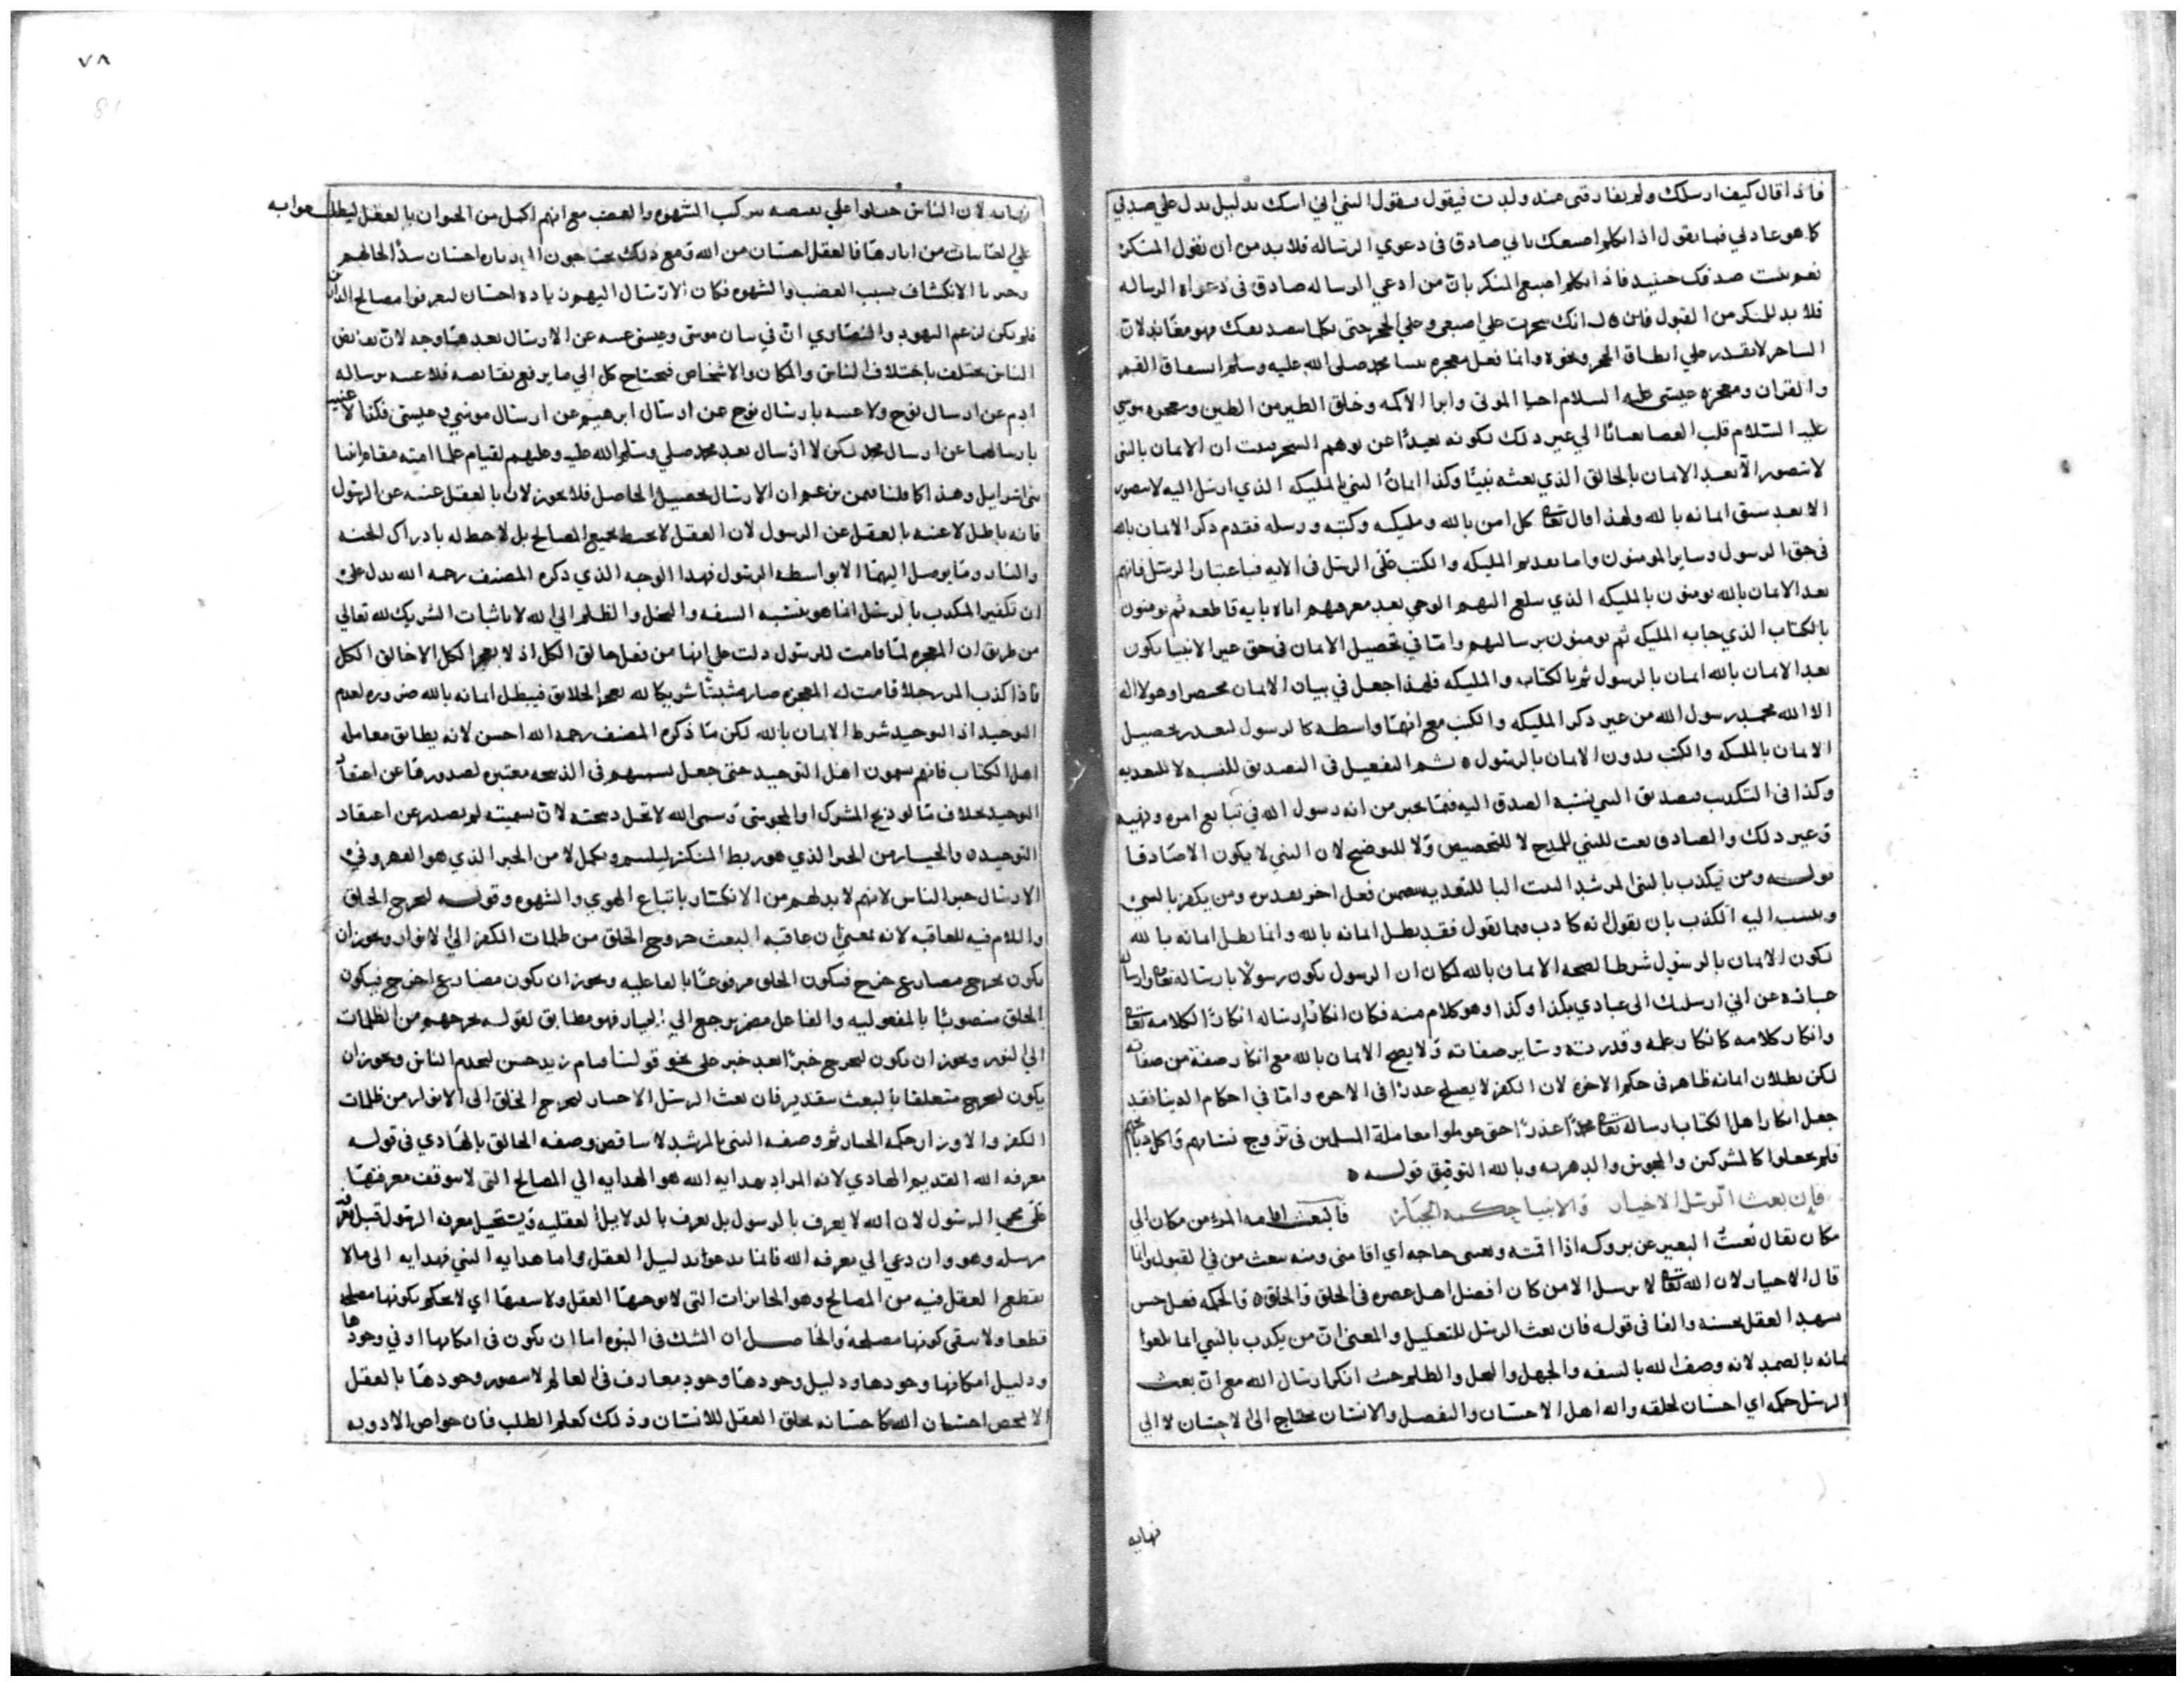 فاذا قال كيف ارسلك ولم يفارقني منذ ولدت فيقول فيقول النبي اني اسك بدليل يدل علي صدقي
كما هو عادلي فيما يقول اذا تكلم اصبعك باني صادق في دعوي الرسالة فلا بد من ان يقول المنكر
نعم صدقك حينيد فاذا تكلم اصبع المنكر بان من ادعي الرساله صادق في دعواه الرساله
فلا بد للمنكر من القبول فان قال انك سحرت علي اصبعي وعلي الحجر حتي تكلما بصدقك فهو معاند لان
الساحر لا يقدر علي انطاق الحجر ونحوه وانما نعل معجزه نبينا محمد صلى الله عليه وسلم انشقاق القمر
والقران ومعجزه عيسى عليه السلام احيا الموتى وابرا الاكمه وخلق الطير من الطين ومعجزه موسى
عليه السلام قلب العصا ثعبانا الي غير ذلك لكونه بعيدا عن توهم السحر ثبت ان الايمان بالنبي
لا يتصور الا بعد الايمان بالخالق الذي بعثه نبيا وكذا ايمان النبي بالمليكه الذي ارسل اليه لا يتصور
الا بعد سبق ايمانه بالله ولهذا قال تعالى كل امن بالله ومليكته وكتبه ورسله فقدم ذكر الايمان بالله
في حق الرسول وساير المومنون واما تقديم المليكه والكتب على الرسل في الايه فباعتبار الرسل فانهم
بعد الايمان بالله يومنون بالمليكه الذي يبلغ اليهم الوحي بعد معرفتهم اياه بايه قاطعه ثم يومنون
بالكتاب الذي جا به المليكه ثم يومنون برسالتهم واما في تحصيل الايمان في حق غير الانبيا يكون
بعد الايمان بالله ايمان بالرسول ثم بالكتاب والمليكه فلهذا جعل في بيان الايمان مختصرا وهو لا اله
الا الله محمد رسول الله من غير ذكر المليكه والكتب مع انهما واسطه كالرسول لتعذر تحصيل
الايمان بالمليكه والكتب بدون الايمان بالرسول ه ثم التفعيل في التصديق للنسبه لا للتعديه
وكذا في التكذيب فتصديق النبي نسبه الصدق اليه فيما يخبر من انه رسول الله في تبليغ امره ونهيه
وغير ذلك والصادق نعت للنبي للمدح لا للتخصيص ولا للتوضيح لان النبي لا يكون الا صادقا
قوله ومن يكذب بالنبي المرشد البت البا للتعديه بتضمن فعل اخر تقديره ومن يكفر بالنبي
وينسب اليه الكذب بان يقول انه كاذب فيما يقول فقد بطل ايمانه بالله وانما بطل ايمانه بالله
لكون الايمان بالرسول شرطا لصحه الايمان بالله لمكان ان الرسول يكون رسولا بارسال الله تعالى وارساله
عبارة عن اني ارسلتك الى عبادي بكذا وكذا وهو كلام منه فكان انكار ارساله انكارا لكلامه تعالى
وانكار كلامه كانكار علمه وقدرته وساير صفاته ولا يصح الايمان بالله مع انكار صفة من صفاته
لكن بطلان ايمانه ظاهر في حكم الاخره لان الكفر لا يصلح عذرا في الاخره واما في احكام الدنيا فقد
جعل انكار اهل الكتاب رساله محمد عذرا حتى عوملوا معاملة المسلمين في تزوج نسايهم واكل ذبايحهم
فلم يجعلوا كالمشركين والمجوس والدهريه وبالله التوفيق قوله ه
فان بعث الرسل الاخيار والانبيا حكمه الجبار فالبعث اقامه المرء من مكان الي
مكان يقال بعثت البعير عن بروكه اذا اقمته وبعثني حاجه اي اقامني ومنه يبعث من في القبور وانما
قال الاخيار لان الله تعالى لا يرسل الا من كان افضل اهل عصره في الخلق والخلق ه والحكمه فعل حسن
يشهد العقل بحسنه والفا في قوله فان بعث الرسل للتعليل والمعنى ان من يكذب بالنبي انما يلغوا
ايمانه بالصمد لانه وصف الله بالسفه والجهل والبخل والظلم حيث انكر ارسال الله مع ان بعث
الرسل حكمه اي احسان لخلقه والله اهل الاحسان والتفضل والانسان محتاج الى الاحسان لا الي
نهايه
٧٨
81
نهايه لان الناس جبلوا علي نقيصه مركب الشهوه والغضب مع انهم اكمل من الحيوان بالعقل ليطلب
علي الغايبات من اثارها فالعقل احسان من الله ومع ذلك يحتاجون الي زياده احسان سدا لخالهم
وجبرا لانكسار بسبب الغضب والشهوه فكان الارسال اليهم زياده احسان ليعرفوا مصالح الدارين
فلم يكن لزعم اليهود والنصاري ان في بيان موسى وعيسى غنيه عن الارسال بعدهما وجه لان نقايص
الناس يختلف باختلاف الناس والمكان والاشخاص فيحتاج كل الي ما يرفع نقايصه فلا غنيه برساله
ادم عن ارسال نوح ولا غنيه بارسال نوح عن ارسال ابرهيم عن ارسال موسي وعيسى فكذا لا غنيه
بارسالهما عن ارسال محمد لكن لا ارسال بعد محمد صلى وسلم الله عليه وعليهم لقيام علما امته مقام انبيا
بني اسرايل وهذا كما قلنا فيمن زعم ان الارسال تحصيل الحاصل فلا يجوز لان بالعقل غنيه عن الرسول
فانه باطل لا غنيه بالعقل عن الرسول لان العقل لا يحيط بجميع المصالح بل لا حظ له بادراك الجنه
والنار وما يوصل اليهما الا بواسطه الرسول فهذا الوجه الذي ذكره المصنف رحمه الله يدل على
ان تكفير المكذب بالرسل انما هو بنسبه السفه والبخل والظلم الي الله لا باثبات الشريك لله تعالي
من طريق ان المعجزه لما قامت للرسول دلت علي انها من فعل خالق الكل اذ لا يعجز الكل الا خالق الكل
فاذا كذب المرء رجلا قامت له المعجزه صار مثبتا شريكا لله يعجز الخلايق فيبطل ايمانه بالله ضروره لعدم
التوحيد اذ التوحيد شرط الايمان بالله لكن ما ذكره المصنف رحمه الله احسن لانه يطابق معامله
اهل الكتاب فانهم يسمون اهل التوحيد حتى جعل تسميتهم في الذبيحه معتبره لصدورها عن اعتقاد
التوحيد بخلاف ما لو ذبح المشرك او المجوسي وسمى الله لا تحل ذبيحته لان تسميته لم يصدر عن اعتقاد
التوحيد ه والجبار من الجبر الذي هو ربط المنكسر ليلتيم ويكمل لا من الجبر الذي هو القهر وفي
الارسال جبر الناس لانهم لا بد لهم من الانكسار باتباع الهوي والشهوه وقوله ليخرج الخلق
واللام فيه للعاقبه لانه يعني ان عاقبه البعث خروج الخلق من ظلمات الكفر الي الانوار ويجوز ان
يكون يخرج مضارع خرج فيكون الخلق مرفوعا بالفاعليه ويجوز ان يكون مضارع اخرج فيكون
الخلق منصوبا بالمفعوليه والفاعل مضمر يرجع الي الجبار فهو مطابق لقوله يخرجهم من الظلمات
الي النور ويجوز ان يكون ليخرج خبرا بعد خبر على نحو قولنا قيام زيد حسن ليخدم الناس ويجوز ان
يكون ليخرج متعلقا بالبعث بتقدير فان بعث الرسل الاخيار ليخرج الخلق الى الانوار من ظلمات
الكفر والاوزار حكمه الجبار ثم وصفه النبي بالمرشد لا يناقض وصفه الخالق بالهادي في قوله
معرفه الله القديم الهادي لانه المراد بهدايه الله هو الهدايه الي المصالح التي لا يتوقف معرفتها
على مجي الرسول لان الله لا يعرف بالرسول بل يعرف بالدلايل العقليه ويستحيل معرفه الرسول قبل معرفه
مرسله وهو وان دعي الي معرفه الله فانما يدعوا بدليل العقل واما هدايه النبي فهدايه الى ما لا
يقطع العقل فيه من المصالح وهو الجايزات التي لا يوجبها العقل ولا ينفيها اي لا يحكم بكونها مصلحه
قطعا ولا ينفي كونها مصلحة والحاصل ان الشك في النبوه اما ان يكون في امكانها او في وجودها
ودليل امكانها وجودها ودليل وجودها وجود معارف في العالم لا يتصور وجودها بالعقل
الا بمحض احسان الله كاحسانه بخلق العقل للانسان وذلك كعلم الطب فان خواص الادويه